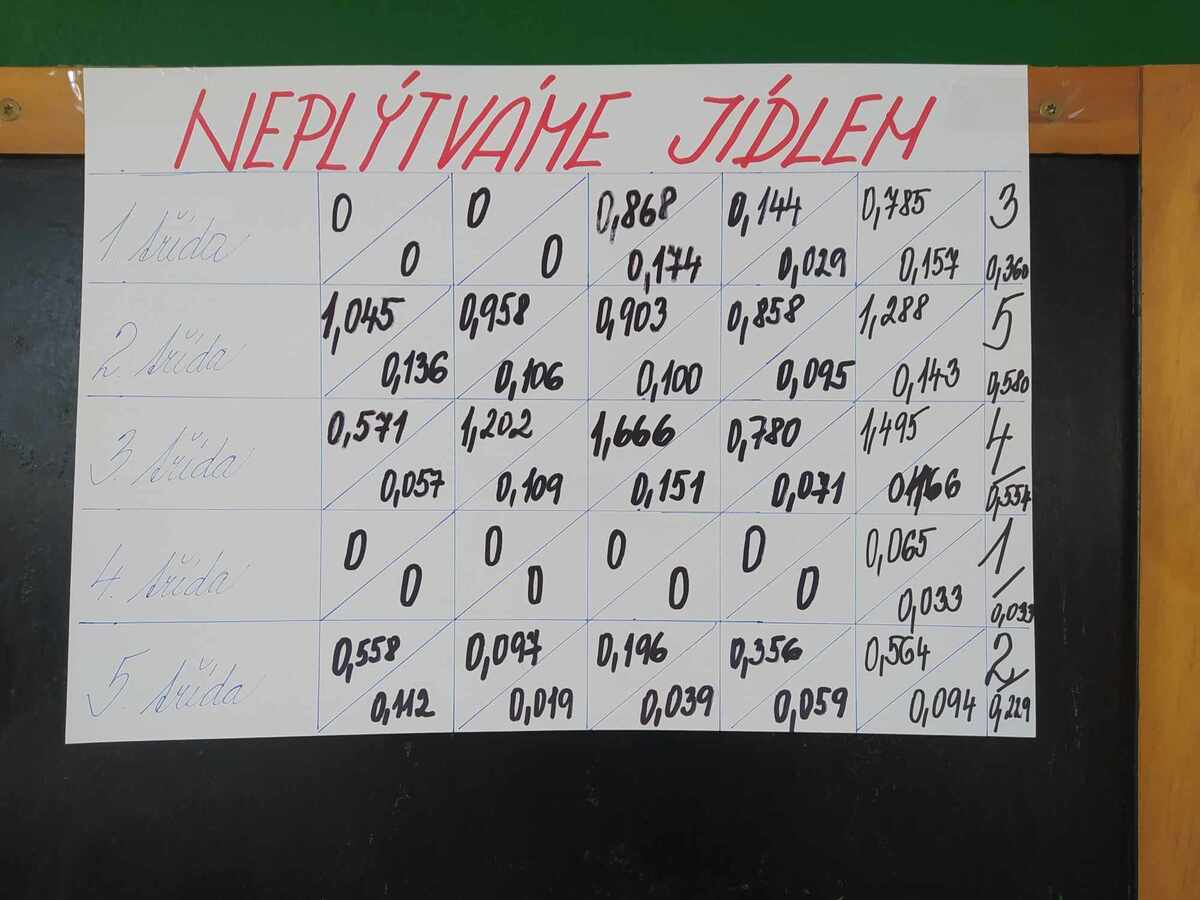 NEPLÝTVÁME JÍDLEM
1 třída 0 0 0,868 0,144 0,785 3
0 0 0,174 0,029 0,157 0,360
2. třída 1,045 0,958 0,903 0,858 1,288 5
0,136 0,106 0,100 0,095 0,143 0,580
3. třída 0,571 1,202 1,666 0,780 1,495 4
0,057 0,109 0,151 0,071 0,166 0,554
4. třída 0 0 0 0 0,065 1
0 0 0 0 0,033 0,033
5. třída 0,558 0,097 0,196 0,356 0,564 2
0,112 0,019 0,039 0,059 0,094